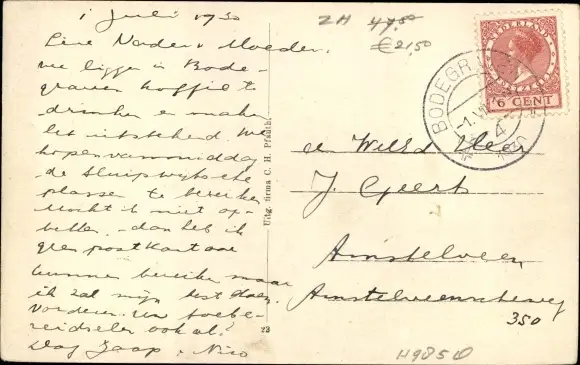 1 Juli 1930
Lieve Vader & Moeder,
we liggen in Bode-
graven koffie te
drinken en maken
het uitstekend. We
hopen vanmiddag
de Sluipwijksche
plassen te bereiken
Mocht ik niet op-
bellen, dan heb ik
geen postkantoor
kunnen bereiken maar
ik zal mijn best doen.
Vorderen uw toebe-
reidselen ook al?
Dag Jaap & Nico
Uitg. firma C. H. Pfaucht
23
ZH 47.50
€21,50
NEDERLAND
6 CENT
BODEGRAVEN
1.VII
4
1930
J. Geerts
Amstelveen
Amstelveenscheweg
350
H9850